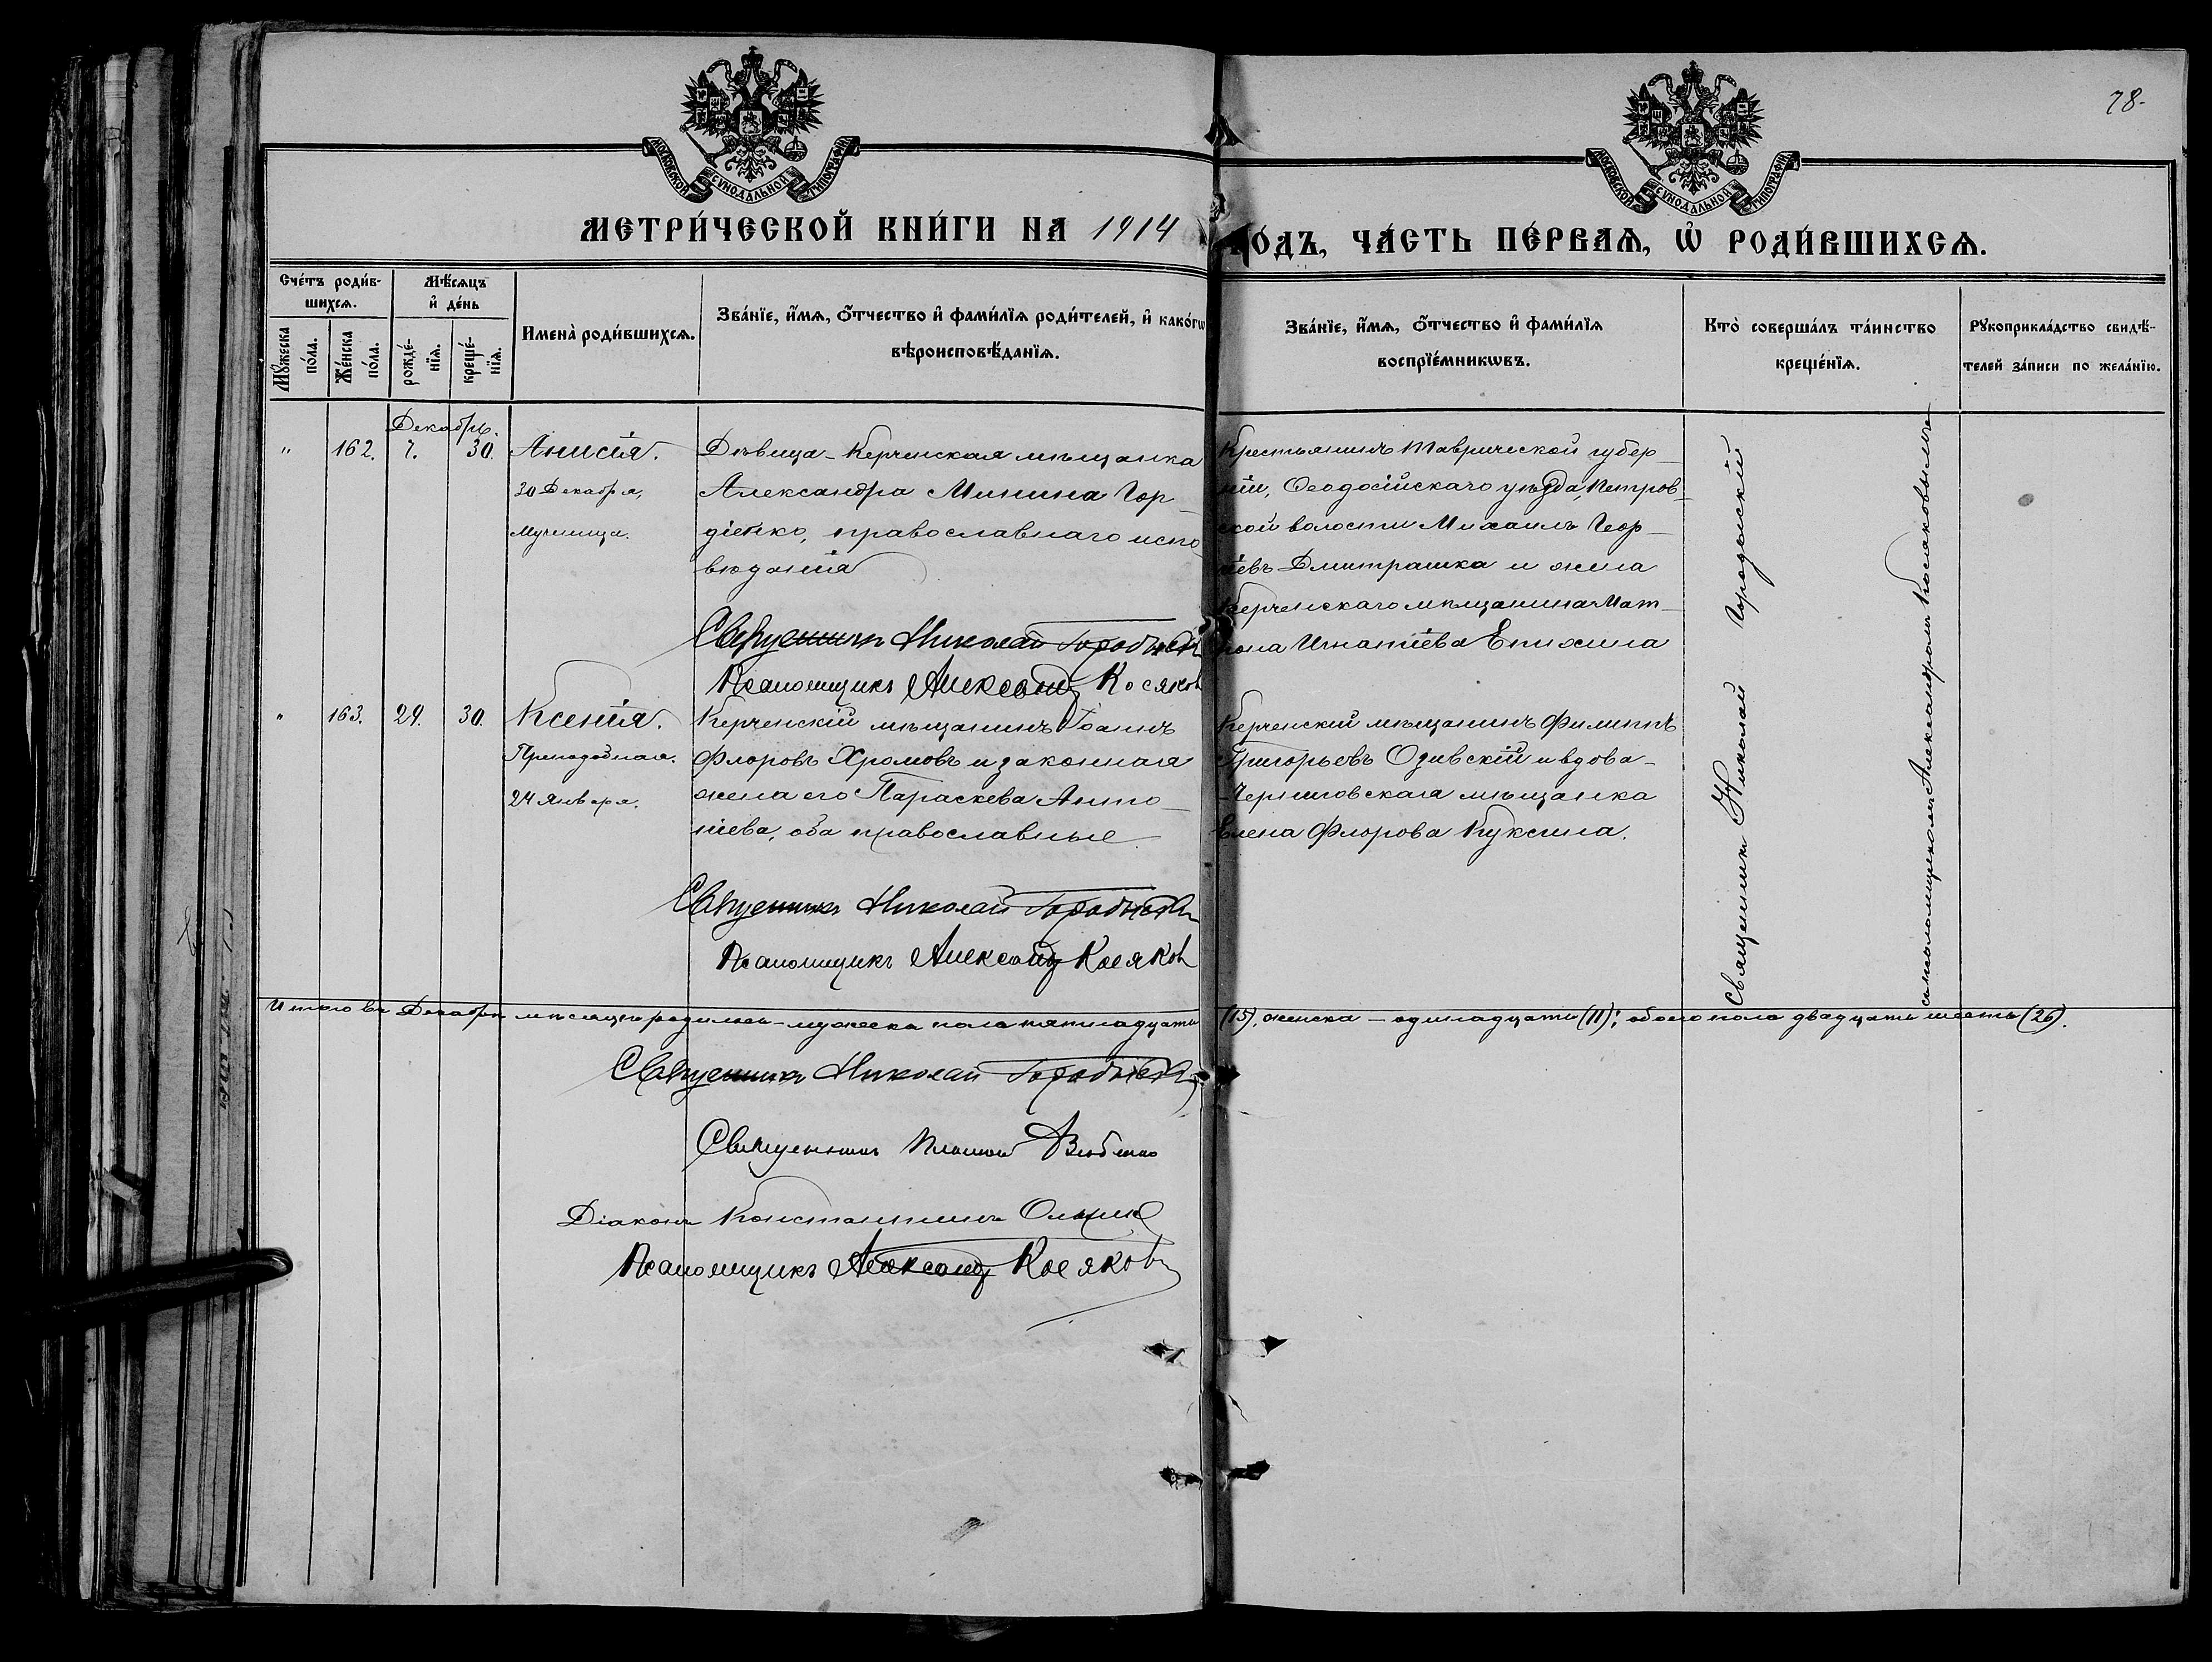 78.
МОСКОВСКОЙ СѴНОДАЛЬНОЙ ТИПОГРАФІИ
МОСКОВСКОЙ СѴНОДАЛЬНОЙ ТИПОГРАФІИ
МЕТРИ́ЧЕСКОЙ КНИ́ГИ НА 1914
ГО́ДЪ, ЧА́СТЬ ПЕ́РВАѦ, Ѡ҆ РОДИ́ВШИХСѦ.
Сче́тъ роди́в-
шихсѧ.
Мꙋ́жеска
по́ла.
Же́нска
по́ла.
Мѣ́сѧцъ
и҆ де́нь
рожде́-
нїѧ.
креще́-
нїѧ.
Имена̀ роди́вшихсѧ.
Зва́нїе, и҆́мѧ, ѻ҆́тчество и҆ фами́лїѧ роди́телей, и҆ како́гѡ
вѣроисповѣ́данїѧ.
Зва́нїе, и҆́мѧ, ѻ҆́тчество и҆ фами́лїѧ
воспрїе́мникѡвъ.
Кто̀ соверша́лъ та́инство
креще́нїѧ.
Рꙋкоприкла́дство свидѣ́-
телей за́писи по жела́нїю.
Декабрь.
" 162. 7. 30. Анисія.
30 Декабря,
мученица.
Дѣвица-Керченская мѣщанка
Александра Минина Гор-
діенко, православнаго испо
вѣданія
Священникъ Николай Городискій
Псаломщикъ Александръ Косяков
Крестьянинъ Таврической губер-
ніи, Ѳеодосійскаго уѣзда, Петров-
ской волости Михаилъ Геор-
гіевъ Дмитрашка и жена
Керченскаго мѣщанина Мат-
рона Игнатіева Епихина
" 163. 29. 30. Ксенія.
Преподобная.
24 января.
Керченскій мѣщанинъ Іоаннъ
Флоровъ Хромовъ и законная
жена его Параскева Анто-
ніева, оба православные.
Священникъ Николай Городискій
Псаломщикъ Александръ Косяков
Керченскій мѣщанинъ Филиппъ
Григорьевъ Озивскій и вдова-
Черниговская мѣщанка
Елена Флорова Куксина.
Священникъ Николай Городискій
съ псаломщикомъ Александромъ Косяковымъ
Итого въ Декабрѣ мѣсяцѣ родилось-мужеска пола пятнадцать (15), женска - одинадцать (11); обоего пола двадцать шесть (26).
Священникъ Николай Городискій
Священникъ
Діаконъ Константинъ
Псаломщикъ Александръ Косяковъ